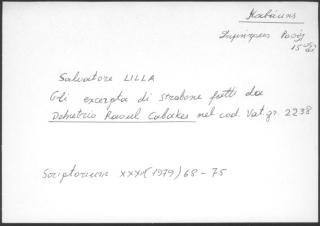 Καβάκης
Δημήτριος Ραούλ
15ος αι.
Salvatore LILLA
Gli excerpta di Strabone fatti da
Demetrio Raoul Cabakes nel cod. Vat. gr. 2238
Scriptorium XXXIII (1979) 68-75